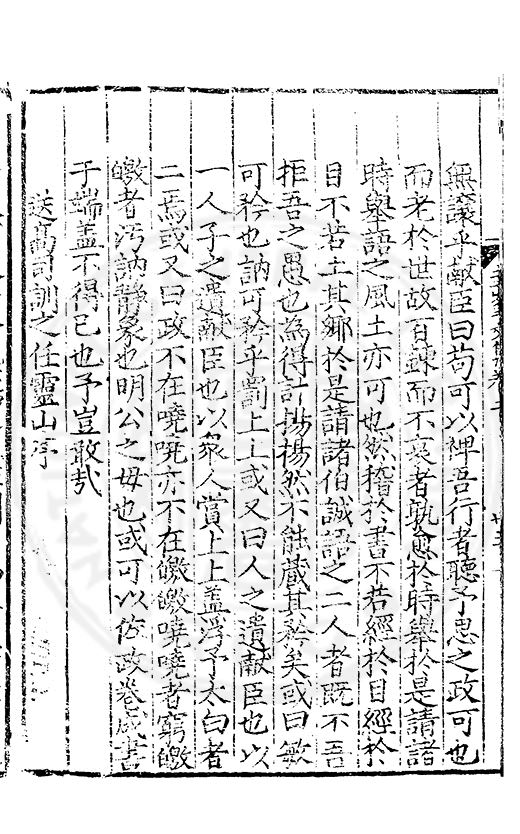 無讓乎獻臣曰茍可以俾吾行者聽予思之政可也
而老於世故百鍊而不衰者孰愈於時舉於是請諸
時舉語之風土亦可也然稽於書不若經於目經於
目不若土其鄉於是請諸伯誠語之二人者既不吾
拒吾之愚也為得計揚揚然不能蔵其矜矣或曰敏
可矜也訥可矜乎罰上上或又曰人之遺獻臣也以
一人子之遺獻臣也以衆人賞上上盖浮予太白者
二焉或又曰政不在嘵嘵亦不在皦皦嘵嘵者窮皦
皦者污訥静象也明公之毋也或可以佐政卷成書
于端盖不得已也予豈敢㢤
送高司訓之任靈山序